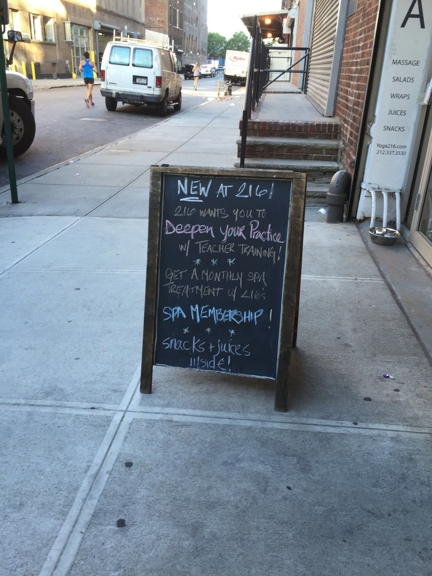 NEW AT 216!
216 WANTS YOU TO
Deepen your Practice
W/ TEACHER TRAINING!
* * *
GET A MONTHLY SPA
TREATMENT W/ 216's
SPA MEMBERSHIP!
* * *
snacks + juices
inside!
A
MASSAGE
SALADS
WRAPS
JUICES
SNACKS
Yoga216.com
212.337.3330